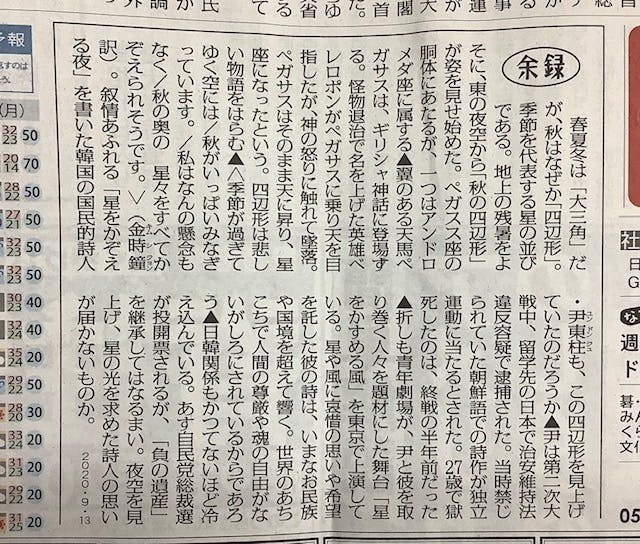 余録
春夏冬は「大三角」だ
が、秋はなぜか「四辺形」。
季節を代表する星の並び
である。地上の残暑をよ
そに、東の夜空から「秋の四辺形」
が姿を見せ始めた。ペガスス座の
胴体にあたるが、一つはアンドロ
メダ座に属する▲翼のある天馬ペ
ガサスは、ギリシャ神話に登場す
る。怪物退治で名を上げた英雄ベ
レロポンがペガサスに乗り天を目
指したが、神の怒りに触れて墜落。
ペガサスはそのまま天に昇り、星
座になったという。四辺形は悲し
い物語をはらむ▲〈季節が過ぎて
ゆく空には/秋がいっぱいみなぎ
っています。/私はなんの懸念も
なく/秋の奥の　星々をすべてか
ぞえられそうです。〉(金時鐘
キムシジョン
訳)。叙情あふれる「星をかぞえ
る夜」を書いた韓国の国民的詩人
・尹東柱も、この四辺形を見上げ
ユンドンジュ
ていたのだろうか▲尹は第二次大
戦中、留学先の日本で治安維持法
違反容疑で逮捕された。当時禁じ
られていた朝鮮語での詩作が独立
運動に当たるとされた。27歳で獄
死したのは、終戦の半年前だった
▲折しも青年劇場が、尹と彼を取
り巻く人々を題材にした舞台「星
をかすめる風」を東京で上演して
いる。星や風に哀惜の思いや希望
を託した彼の詩は、いまなお民族
や国境を超えて響く。世界のあち
こちで人間の尊厳や魂の自由がな
いがしろにされているからであろ
う▲日韓関係もかつてないほど冷
え込んでいる。あす自民党総裁選
が投開票されるが、「負の遺産」
を継承してはなるまい。夜空を見
上げ、星の光を求めた詩人の思い
が届かないものか。
2020・9・13
予報
(月)
50
70
50
50
50
50
40
40
20
50
20
20
20
20
20
社
週
05